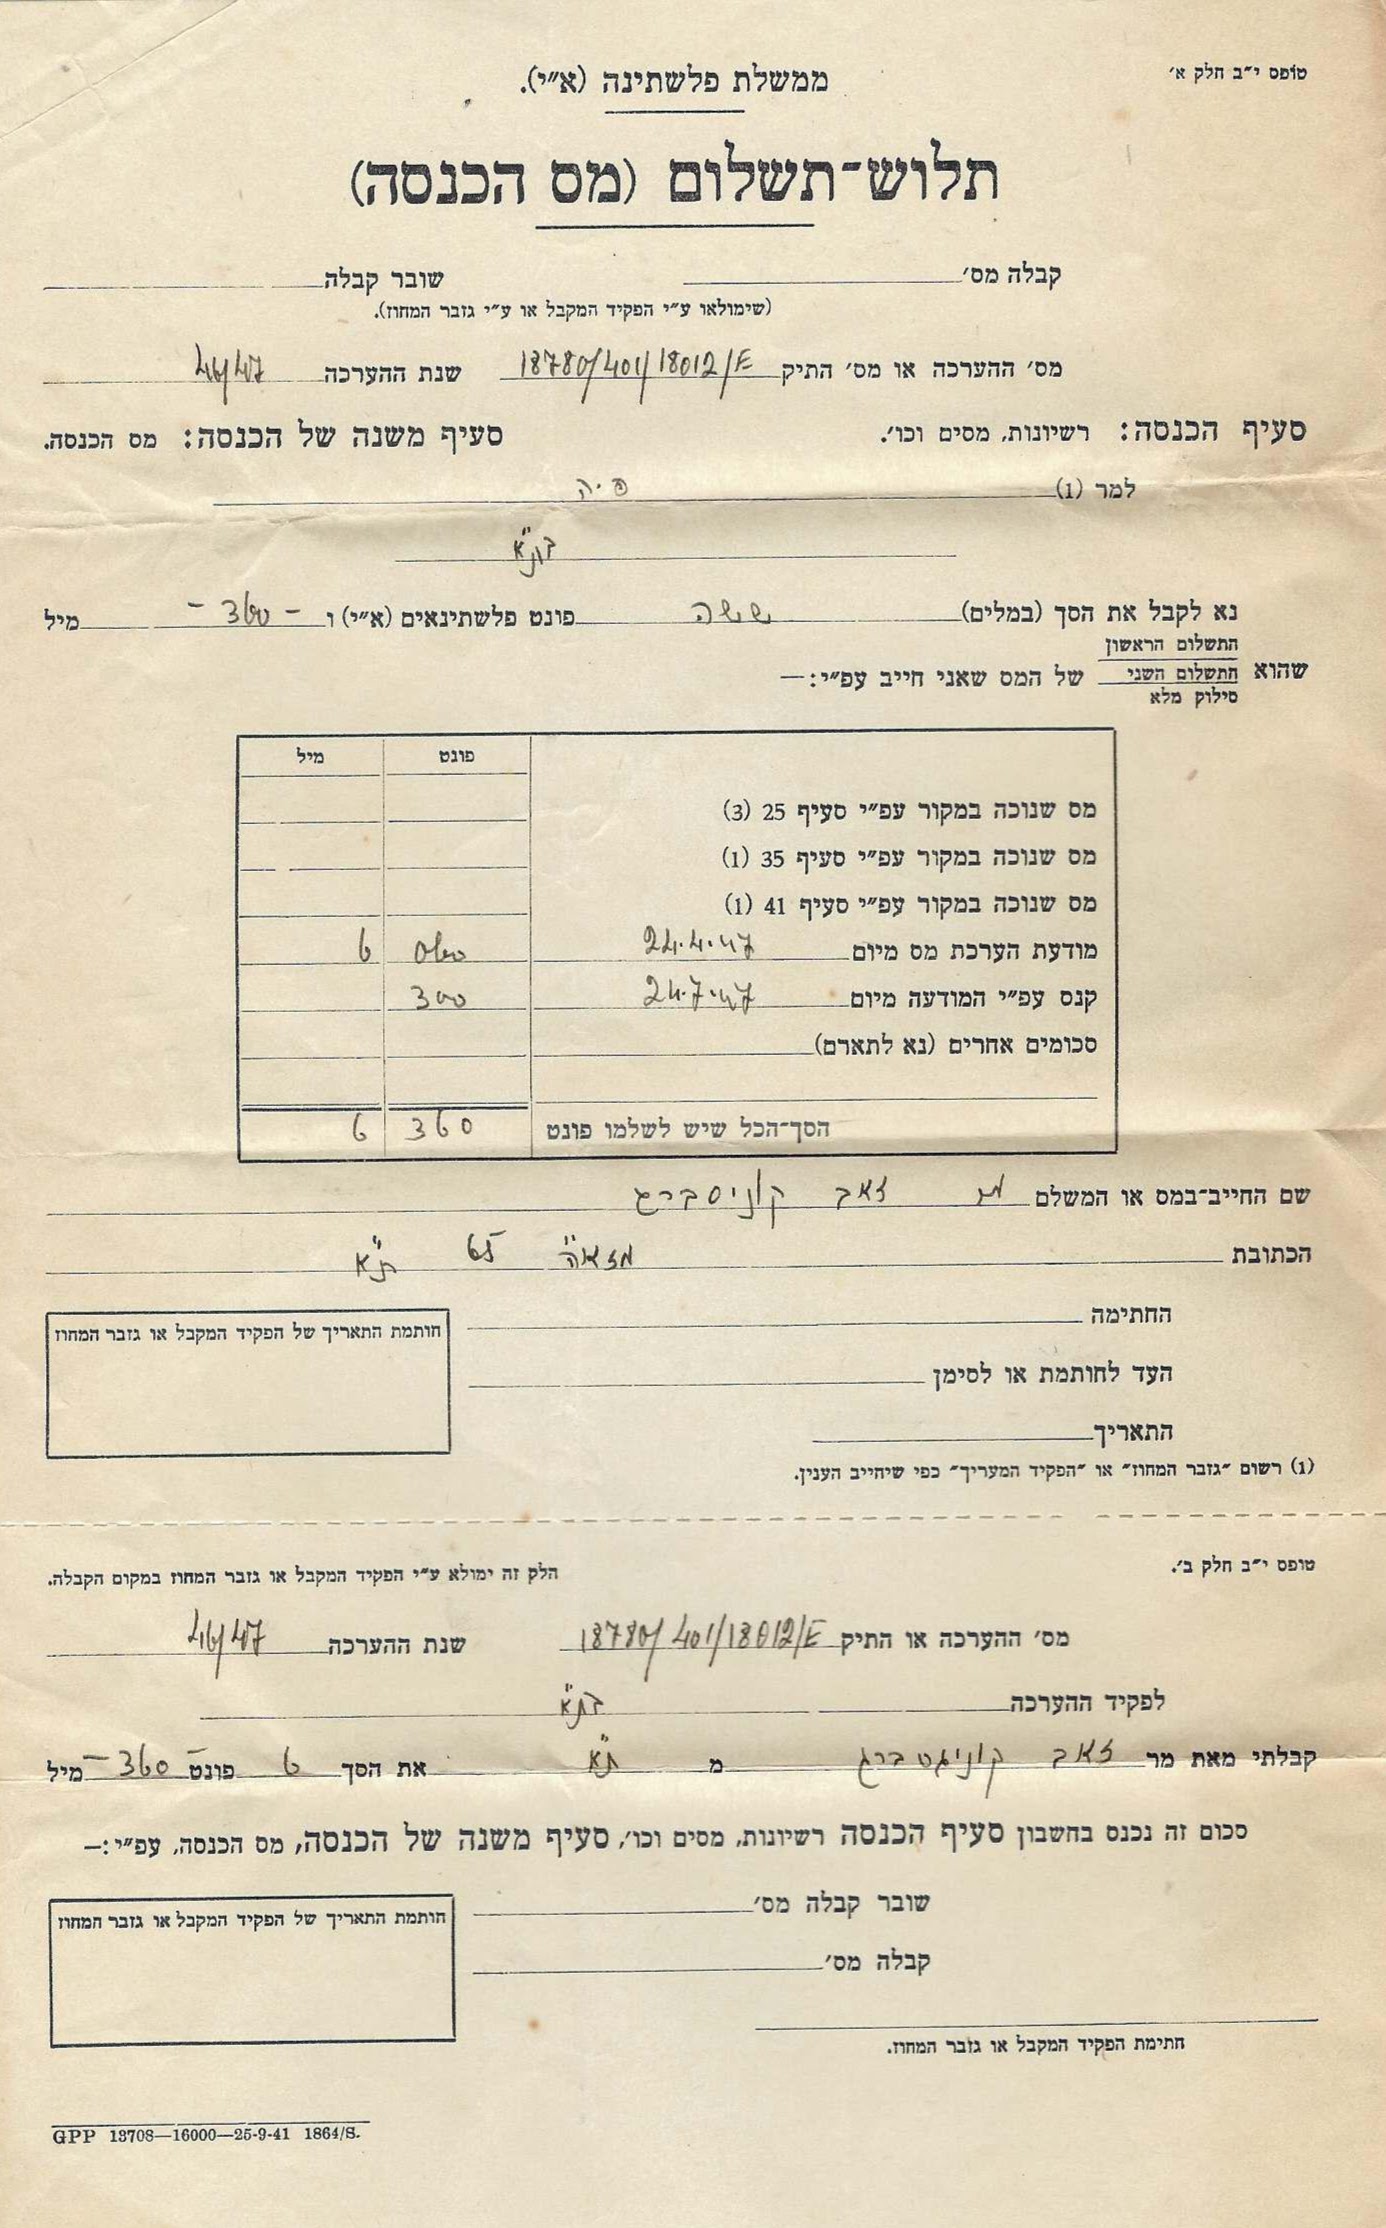 טופס י״ב חלק א׳
ממשלת פלשתינה (א״י).
תלוש־תשלום (מס הכנסה)
קבלה מס׳ שובר קבלה
(שימולאו ע״י הפקיד המקבל או ע״י גזבר המחוז).
מס׳ ההערכה או מס׳ התיק 18780/401/18012/E שנת ההערכה 46/47
סעיף הכנסה: רשיונות, מסים וכו׳. סעיף משנה של הכנסה: מס הכנסה.
למר (1) פ.ה
נא לקבל את הסך (במלים) ששה פונט פלשתינאים (א״י) ו - 360 - מיל
התשלום הראשון
שהוא התשלום השני של המס שאני חייב עפ״י:—
סילוק מלא
פונט מיל
מס שנוכה במקור עפ״י סעיף 25 (3)
מס שנוכה במקור עפ״י סעיף 35 (1)
מס שנוכה במקור עפ״י סעיף 41 (1)
מודעת הערכת מס מיום 24.4.47 060 6
קנס עפ״י המודעה מיום 24.7.47 300
סכומים אחרים (נא לתארם)
הסך־הכל שיש לשלמו פונט 360 6
שם החייב־במס או המשלם מר זאב קוניסברג
הכתובת מזא״ה 65 ת״א
החתימה
חותמת התאריך של הפקיד המקבל או גזבר המחוז
העד לחותמת או לסימן
התאריך
(1) רשום ״גזבר המחוז״ או ״הפקיד המעריך״ כפי שיחייב הענין.
טופס י״ב חלק ב׳.
הלק זה ימולא ע״י הפקיד המקבל או גזבר המחוז במקום הקבלה.
מס׳ ההערכה או התיק 18780/401/18012/E שנת ההערכה 46/47
לפקיד ההערכה בת״א
קבלתי מאת מר זאב קוניגסברג מ ת״א את הסך 6 פונט - 360 - מיל
סכום זה נכנס בחשבון סעיף הכנסה רשיונות, מסים וכו׳, סעיף משנה של הכנסה, מס הכנסה, עפ״י:—
שובר קבלה מס׳
חותמת התאריך של הפקיד המקבל או גזבר המחוז
קבלה מס׳
חתימת הפקיד המקבל או גזבר המחוז.
GPP 13708—16000—25-9-41 1864/S.